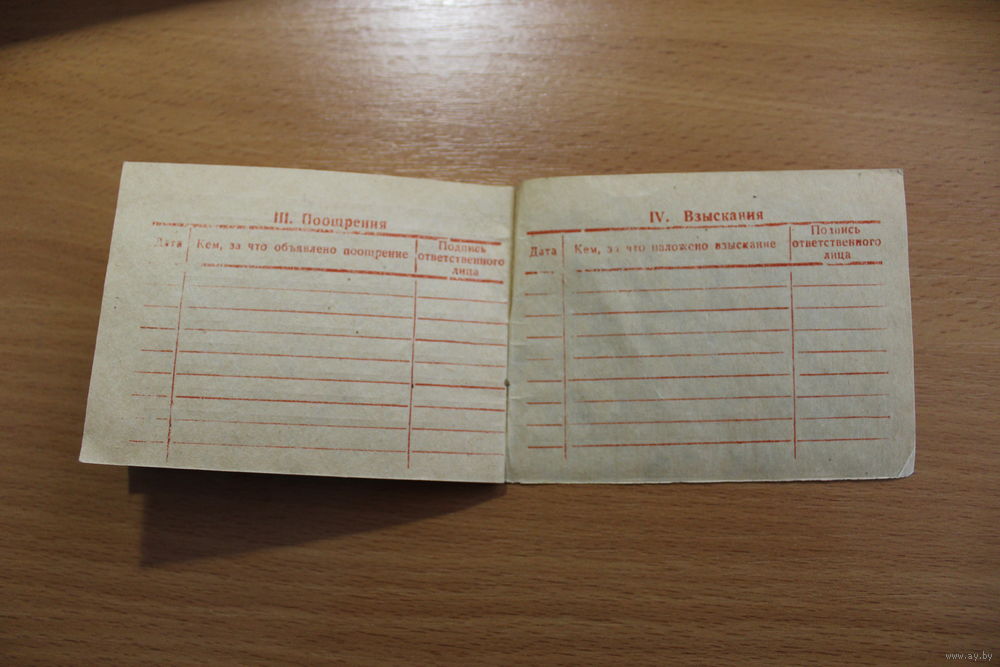 III. Поощрения
Дата
Кем, за что объявлено поощрение
Подпись
ответственного
лица
IV. Взыскания
Дата
Кем, за что наложено взыскание
Подпись
ответственного
лица
www.ay.by